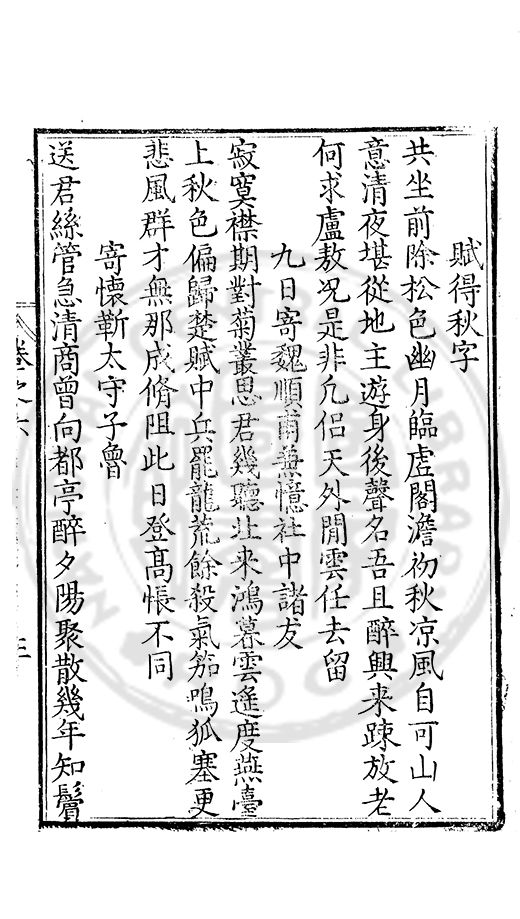 賦得秋字
共坐前除松色幽月臨虛閣澹初秋凉風自可山人
意清夜堪從地主遊身後聲名吾且醉興来踈放老
何求盧敖况是非凢侣天外閒雲任去留
九日寄魏順甫兼憶社中諸友
寂寞襟期對菊叢思君幾聽北来鴻暮雲遙度燕臺
上秋色偏歸楚賦中兵罷龍荒餘殺氣笳鳴狐塞更
悲風群才無那成脩阻此日登髙悵不同
寄懷靳太守子魯
送君絲管急清商曾向都亭醉夕陽聚散幾年知鬢
卷之六
三